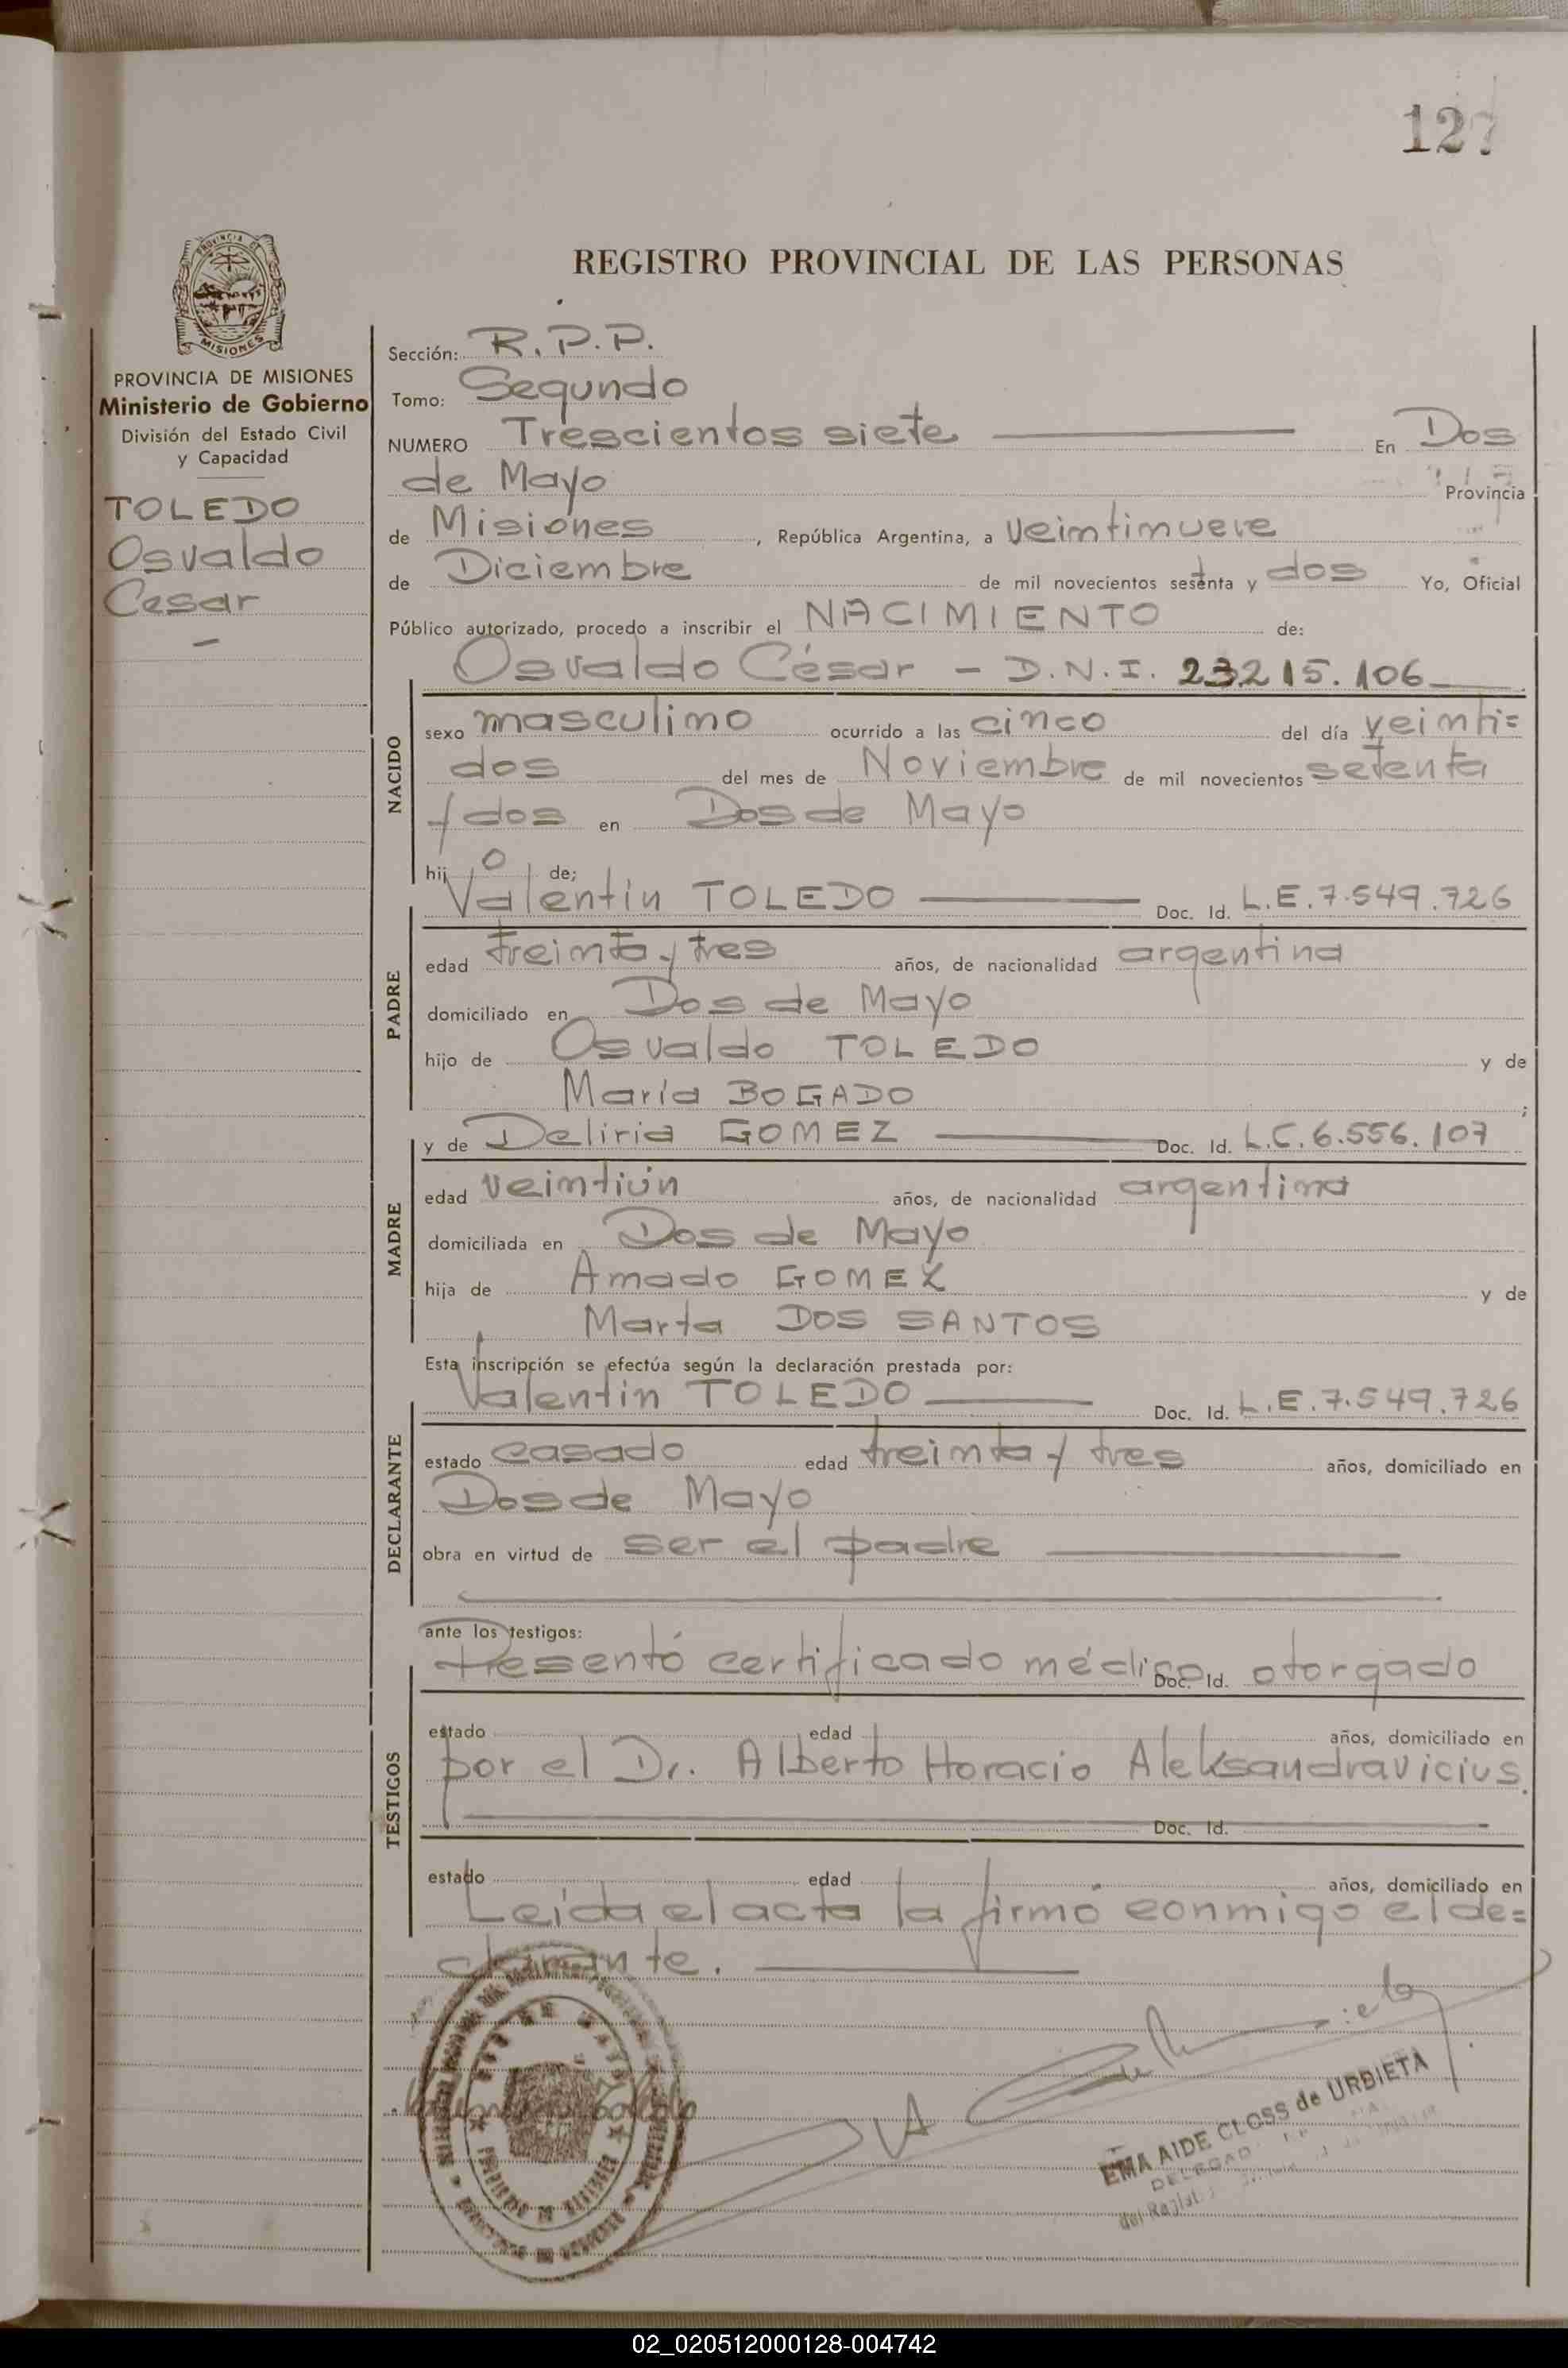 127
PROVINCIA DE
MISIONES
REGISTRO PROVINCIAL DE LAS PERSONAS
PROVINCIA DE MISIONES
Ministerio de Gobierno
División del Estado Civil
y Capacidad
TOLEDO
Osvaldo
Cesar
Sección: R.P.P.
Tomo: Segundo
NUMERO Trescientos siete En Dos
de Mayo Provincia
de Misiones, República Argentina, a veintinueve
de Diciembre de mil novecientos sesenta y dos Yo, Oficial
Público autorizado, procedo a inscribir el NACIMIENTO de:
Osvaldo César - D.N.I. 23215.106
NACIDO
sexo masculino ocurrido a las cinco del día veinti=
dos del mes de Noviembre de mil novecientos setenta
y dos en Dos de Mayo
hijo de;
Valentin TOLEDO Doc. Id. L.E.7.549.726
PADRE
edad treinta y tres años, de nacionalidad argentina
domiciliado en Dos de Mayo
hijo de Osvaldo TOLEDO y de
María BOGADO ;
y de Deliria GOMEZ Doc. Id. L.C.6.556.107
MADRE
edad veintiún años, de nacionalidad argentina
domiciliada en Dos de Mayo
hija de Amado GOMEZ y de
Marta DOS SANTOS
Esta inscripción se efectúa según la declaración prestada por:
Valentin TOLEDO Doc. Id. L.E.7.549.726
DECLARANTE
estado casado edad treinta y tres años, domiciliado en
Dos de Mayo
obra en virtud de ser el padre
ante los testigos:
Presentó certificado médico Doc. Id. otorgado
TESTIGOS
estado edad años, domiciliado en
por el Dr. Alberto Horacio Aleksandravicius.
Doc. Id.
estado edad años, domiciliado en
Leída el acta la firmó conmigo el de=
clarante.
EMA AIDE CLOSS de URBIETA
02_020512000128-004742